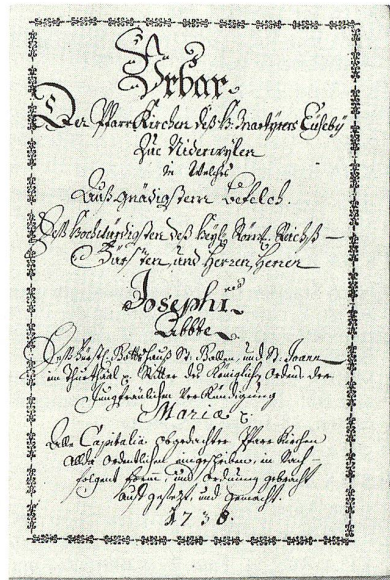 Urbar
Der Pfarr Kirchen deß H: Martyrers Euseby
zue Niderwylen
in Welches
Auß gnädigstem befelch.
Deß Hochwürdigsten deß Heyl: Röm: Reichß
Fürsten, und Herren, Herren
Josephi
Abbte
Deß Fürstl: Gottshauß St: Gallen, und St: Joann
im Thurthaal Ritter des Königlichen Ordens der
Jungfraülichen Verkündigung
Mariæ
Alle Capitalia obgedachter Pfarr Kirchen
allda ordentlichen eingeschriben, in Nach-
folgent form, und Ordnung gebracht
und gemacht.